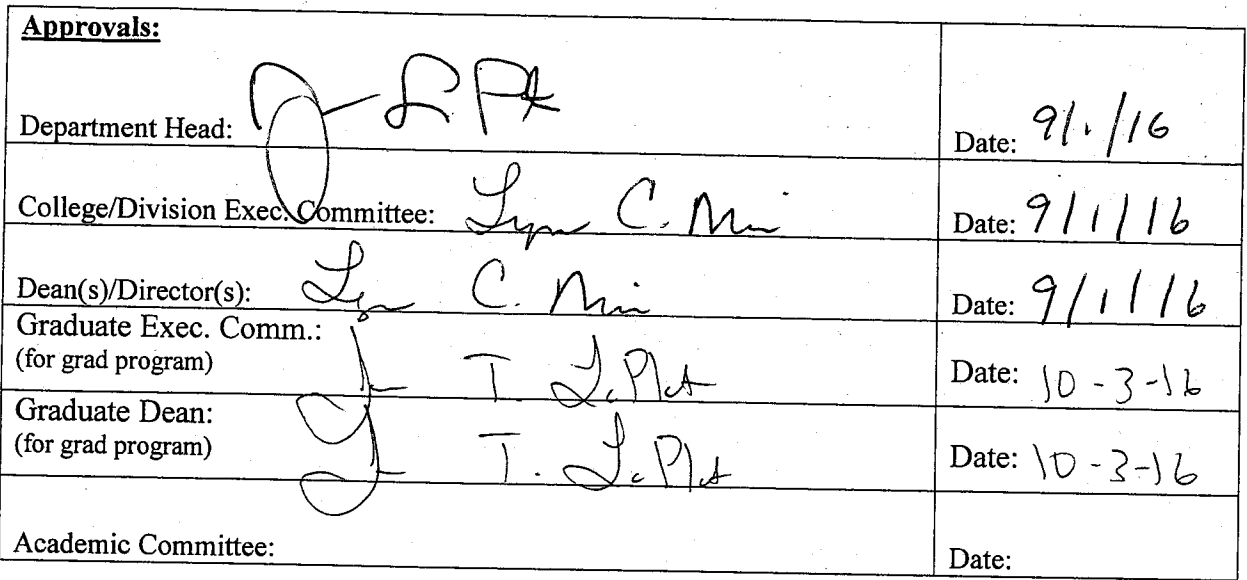 Approvals:
Department Head:
Date: 9/1/16
College/Division Exec. Committee:
Date: 9/1/16
Dean(s)/Director(s): C.
Date: 9/1/16
Graduate Exec. Comm.:
(for grad program)
T.
Date: 10-3-16
Graduate Dean:
(for grad program)
T.
Date: 10-3-16
Academic Committee:
Date: